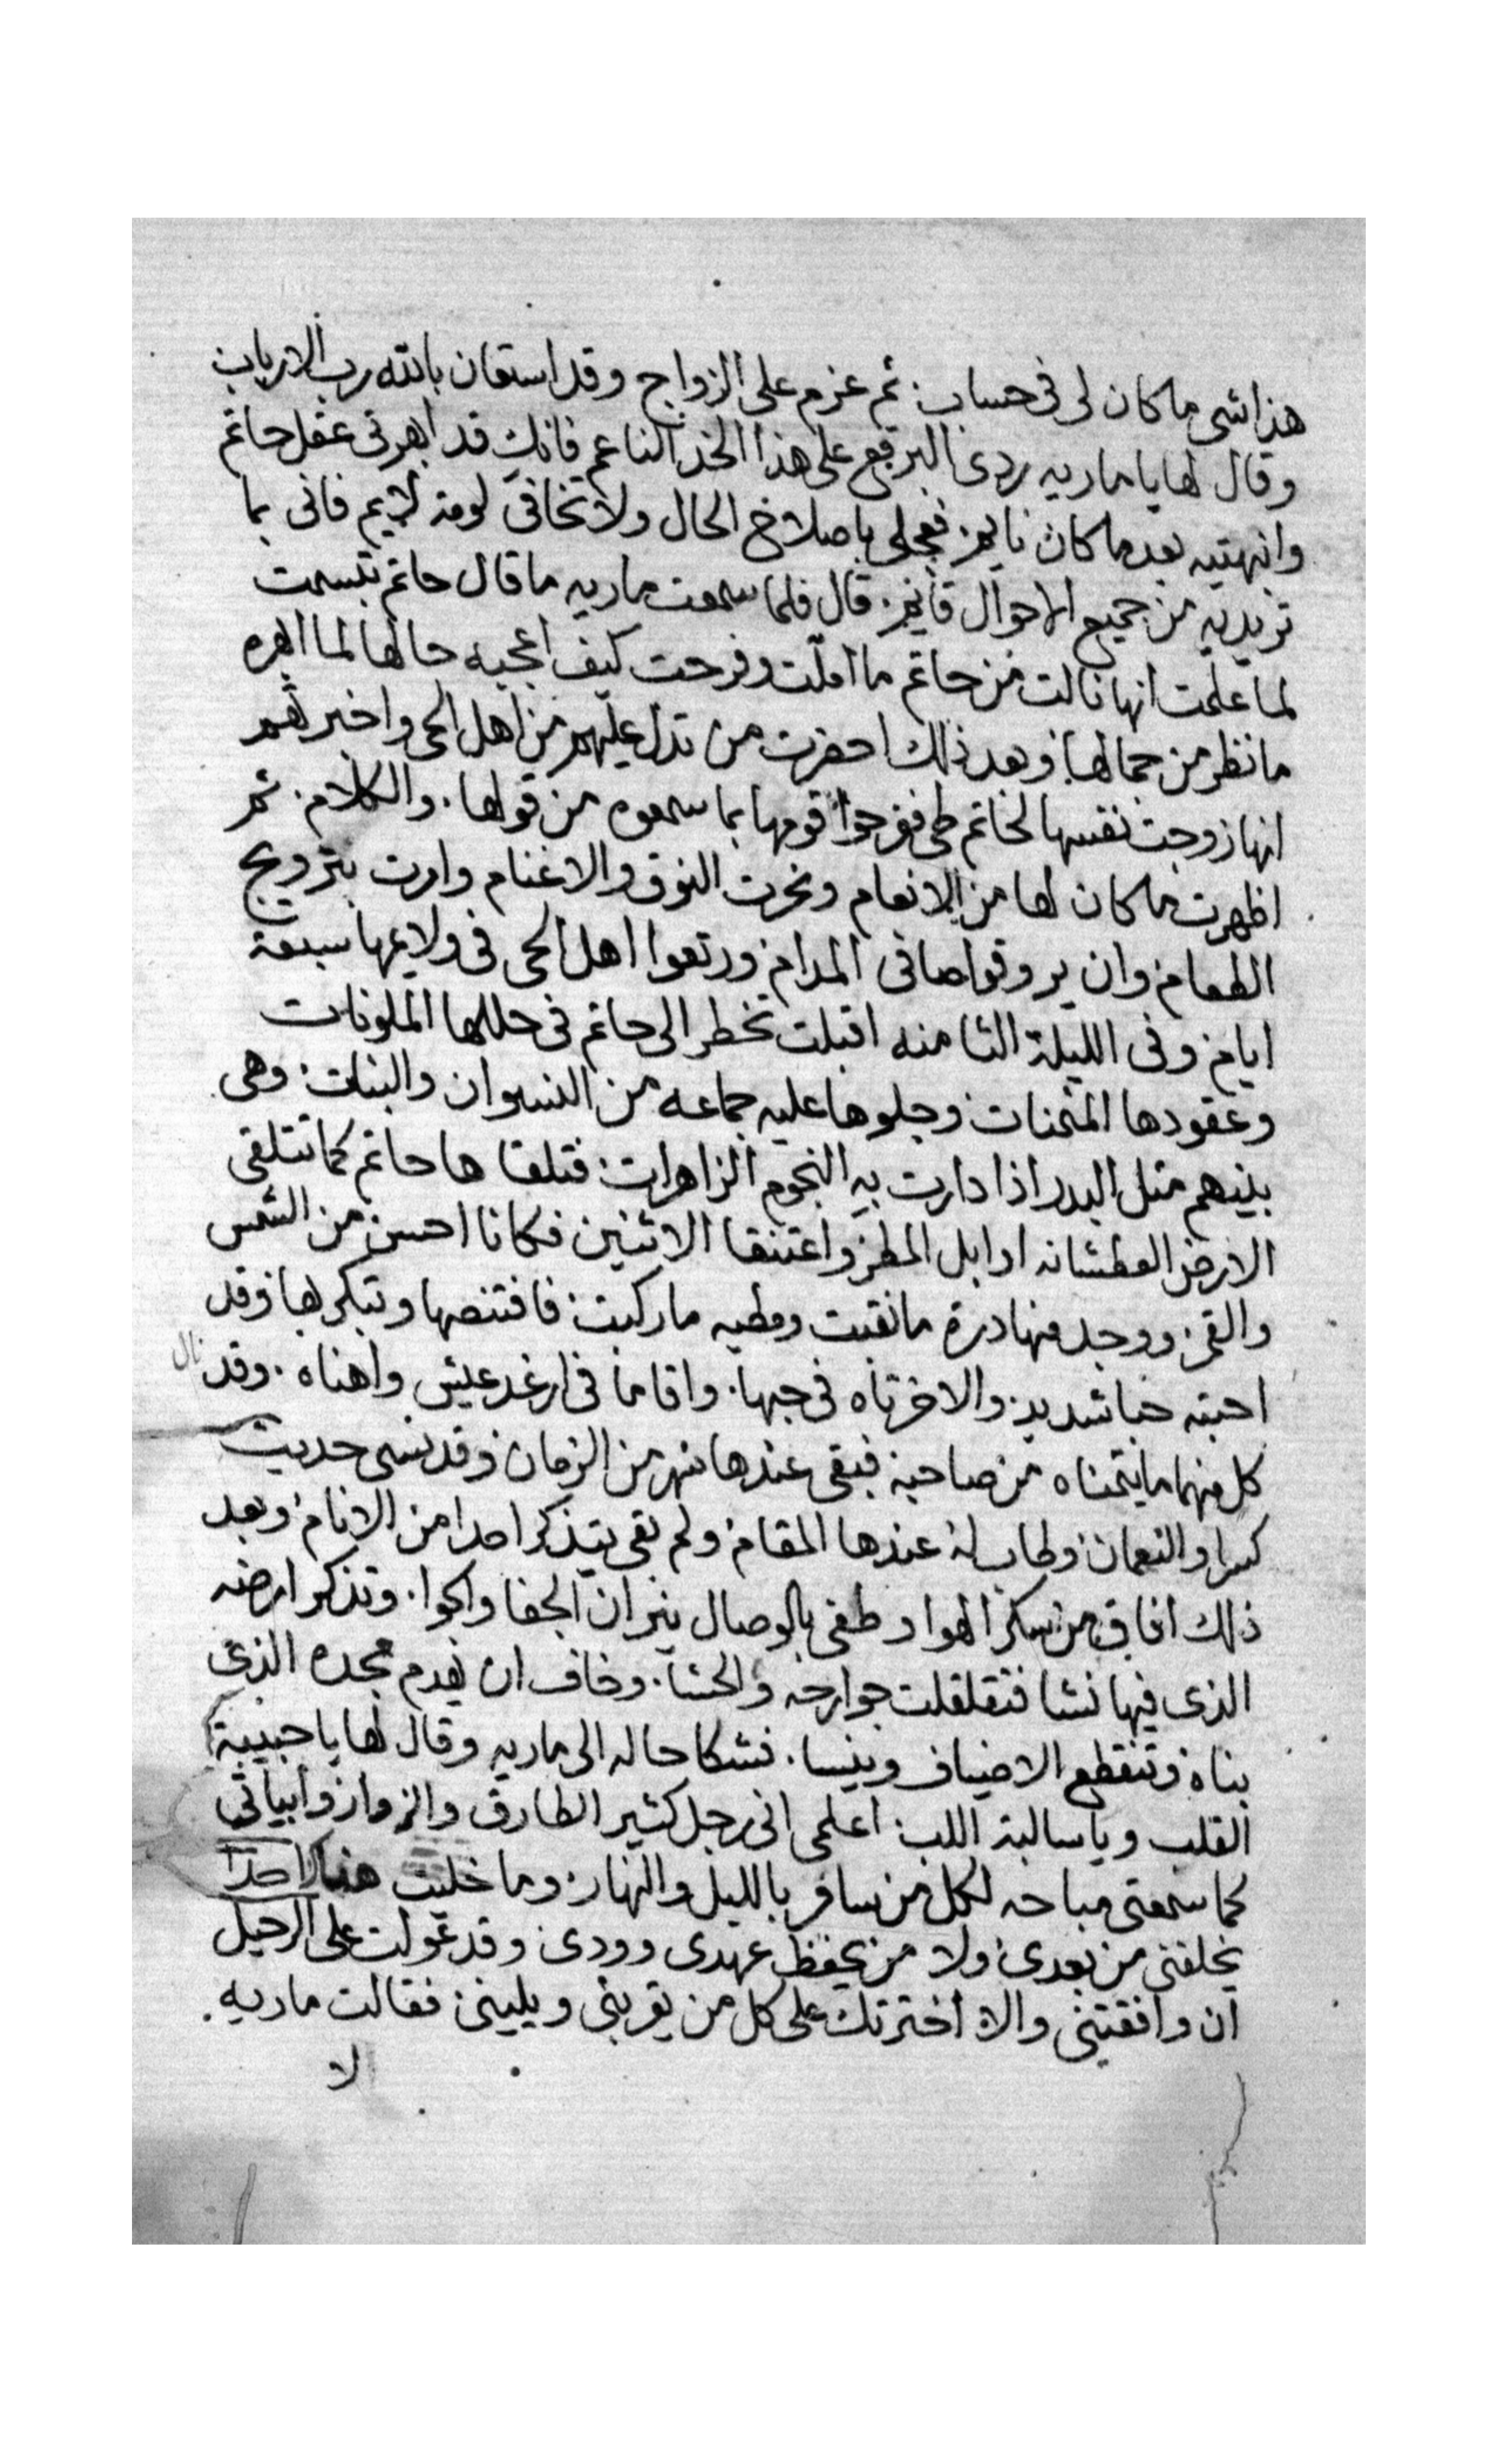 هذا شى ما كان لى فى حساب. ثم عزم على الزواج وقد استعان بالله رب الارباب
وقال لها يا ماريه ردى البرقع على هذا الخد الناعم فانك قد ابهرتى عقل حاتم
وانبهتيه بعد ما كان نايم. فعجلى باصلاح الحال ولا تخافى لومة لايم فانى بما
تريديه من جميع الاحوال قايم. قال فلما سمعت ماريه ما قال حاتم تبسمت
لما علمت انها نالت من حاتم ما املت وفرحت كيف اعجبه حالها لما ابهره
ما نظر من جمالها. وبعد ذلك احضرت من تدل عليهم من اهل الحى واخبرتهم
انها زوجت نفسها لحاتم طى ففرحوا قومها بما سمعوه من قولها. والكلام. ثم
اظهرت ما كان لها من الانعام ونحرت النوق والاغنام وامرت بترويج
الطعام. وان يروقوا صافى المدام. ورتعوا اهل الحى فى ولايمها سبعة
ايام. وفى الليلة الثامنه اقبلت تخطر الى حاتم فى حللها الملونات
وعقودها المثمنات. وجلوها عليه جماعه من النسوان والبنات. وهى
بينهم مثل البدر اذا دارت به النجوم الزاهرات. فتلقاها حاتم كما تتلقى
الارض العطشانه اوابل المطر. واعتنقا الاثنين فكانا احسن من الشمس
والقمر. ووجد منها درة ما نقبت ومطيه ما ركبت. فافتنصها وتبكرها. وقد
احبته حبا شديد. والاخر تاه فى حبها. واقاما فى ارغد عيش واهناه. وقد نال
كل منهما ما يتمناه من صاحبه فبقى عندها شهر من الزمان. وقد نسى حديث
كسرا والنعمان. وطاب له عندها المقام. ولم بقى يتذكر احدا من الانام. وبعد
ذلك افاق من سكر الهوا وطفى بالوصال نيران الجفا والجوا. وتذكر ارضه
الذى فيها نشا فتقلقلت جوارحه والحشا. وخاف ان يهدم مجده الذى
بناه. وتنقطع الاضياف وينسا. فشكا حاله الى ماريه وقال لها يا حبيبة
القلب ويا سالبة اللب. اعلمى انى رجل كثير الطارق والزوار. وابياتى
كما سمعتى مباحه لكل من سافر بالليل والنهار. وما خليت هناك احدا
يخلفنى من بعدى. ولا من يحفظ عهدى وودى. وقد عولت على الرحيل
ان وافقتينى والا اخترتك على كل من يقربنى ويلينى. فقالت ماريه.
لا